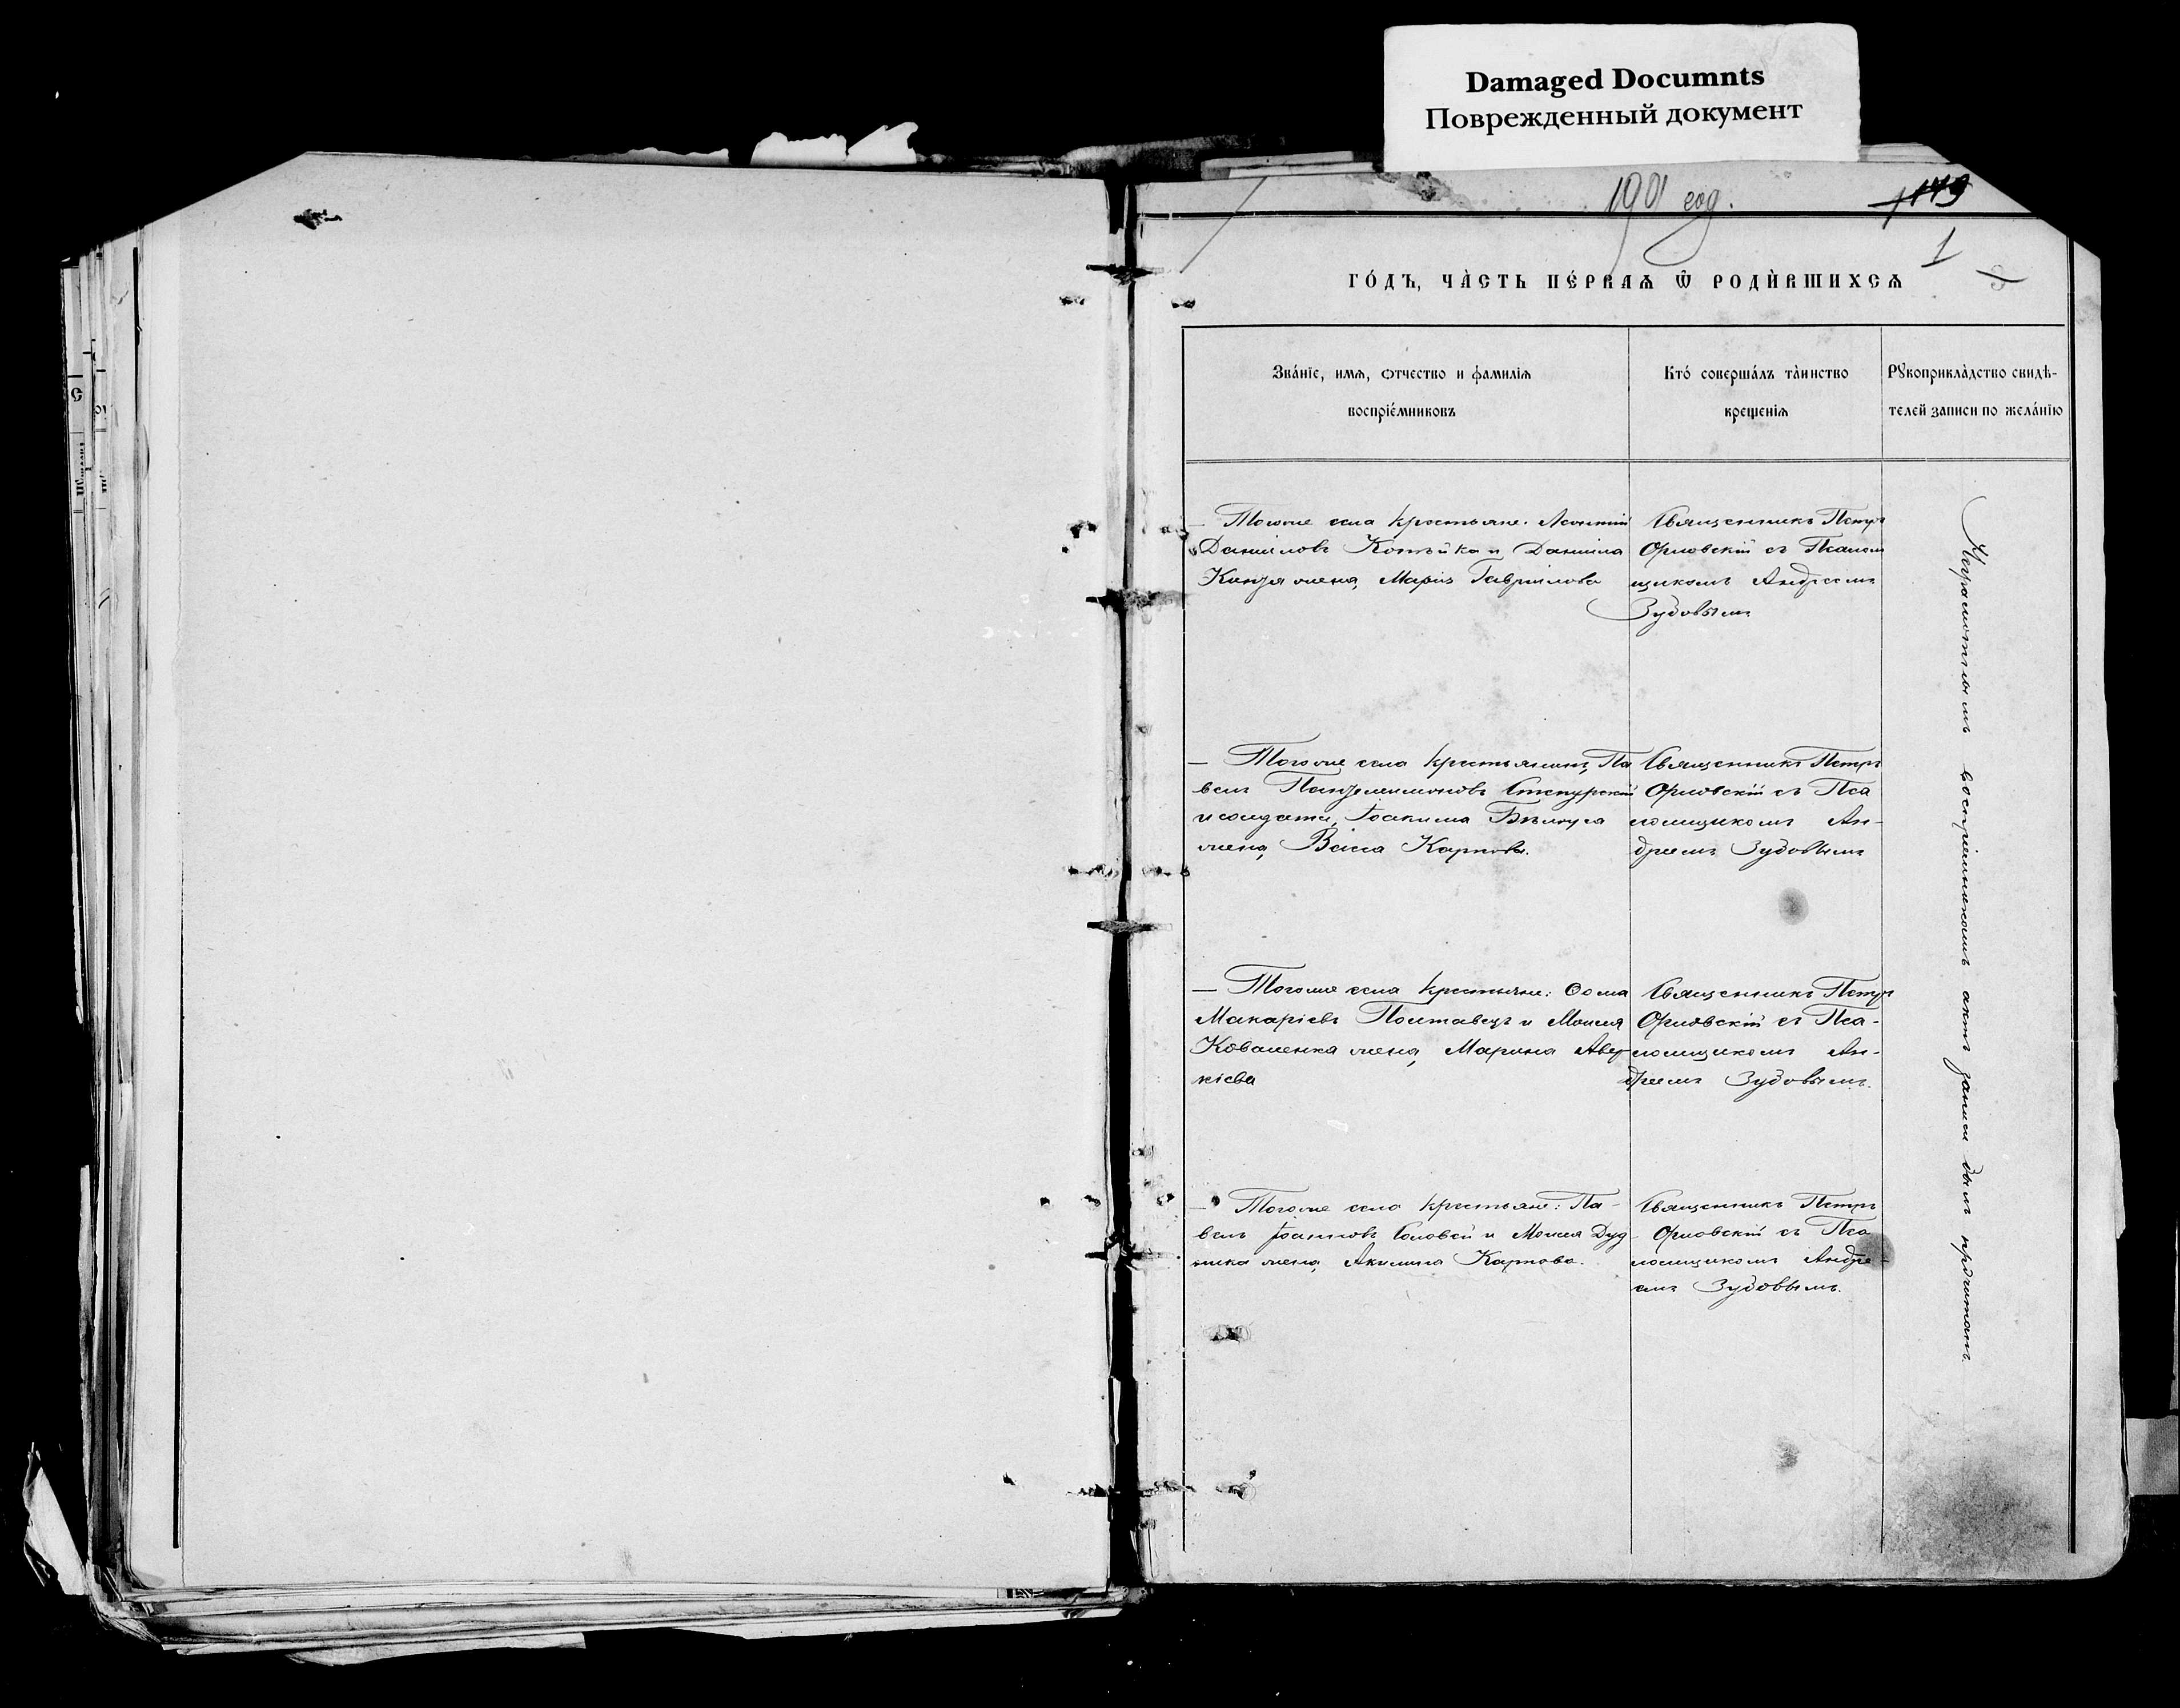 Damaged Documnts
Поврежденный документ
1901 год.
149
1
ГО́ДЪ, ЧА̀СТЬ ПЕ́РВАѦ Ѿ РОДЍВШИХСѦ
Зва́нїе, имѧ, ѻтчество и фамилїѧ
воспрїе́мниковъ
Кто́ соверша́лъ та̀инство
крещенїѧ
Рꙋкоприкла̀дство свидѣ-
телей записи по жела́нїю
Тогоже села крестьяне: Леонтій
Даниловъ Котѣйко и Даніила
Кинзя жена, Марія Гавріилова
Священникъ Петръ
Орловскій съ Псалом
щикомъ Андреемъ
Зубовымъ
Тогоже села крестьянинъ, Па
велъ Пантелеимоновъ Степурскій
и солдата, Іоакима Бѣлоуса
жена, Васса Карпова.
Священникъ Петръ
Орловскій съ Пса
ломщикомъ Ан-
дреемъ Зубовымъ
Тогоже села крестьяне: Ѳома
Макаріевъ Полтавецъ и Моисея
Коваленка жена, Марина Авер-
кіева
Священникъ Петръ
Орловскій съ Пса-
ломщикомъ Ан-
дреемъ Зубовымъ.
Тогоже села крестьяне: Па-
велъ Іоанновъ Соловей и Моисея Дуд
ника жена, Акилина Карпова.
Священникъ Петръ
Орловскій съ Пса
ломщикомъ Андре-
емъ Зубовымъ.
Неграмотнымъ воспріемникамъ актъ записи былъ прочитанъ.